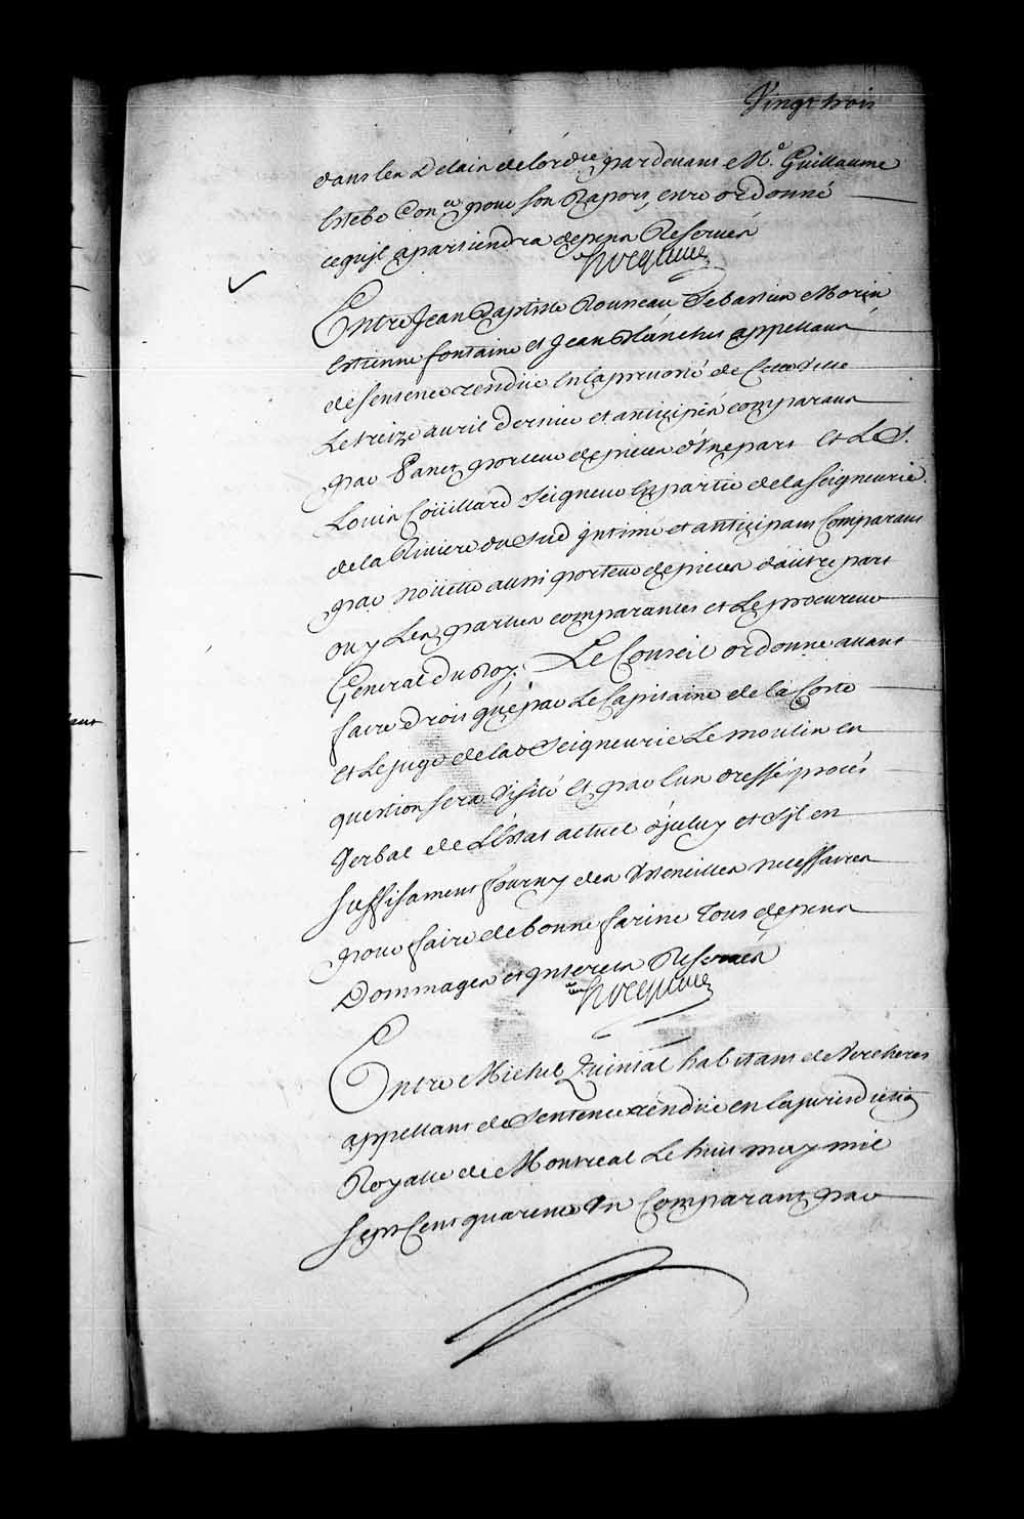 Vingt trois
dans les Delais de lordce pardevant Me. Guillaume
Estebe Coner pour son Raport, entre ordonné
cequil apartiendra depens Reservés
hocquart
Entre Jean Baptiste Rousseau Sebastien Morin
Estienne fontaine et Jean Blanchet appellans
de sentence rendüe En la prevosté de Cette Ville
Le treize avril dernier et anticipés comparans
par Panet porteur de pieces d'Une part Et Le S.
Louis Coüillard Seigneur En partie de la seigneurie
de la Riviere du Sud Intimé et anticipant Comparant
par Noüette aussi porteur de pieces d'autre part
ouy Les parties comparantes et Le procureur
General du Roy. Le Conseil ordonne avant
faire droit que par Le Capitaine de la Coste
et Le juge de lad Seigneurie Le moulin en
question sera visité Et par Eux dressé procés
Verbal de L'Estat actuel d'jceluy et s'jl en
suffisament fourny des Ustencilles necessaires
pour faire de bonne farine Tous depens
Dommages et Interests Reservés
hocquart
Entre Michel Quintal habitant de Vercheres
appellant de Sentence rendüe en la jurisdiction
Royalle de Montreal Le huit may mil
sept Cent quarente Un Comparant par
ant